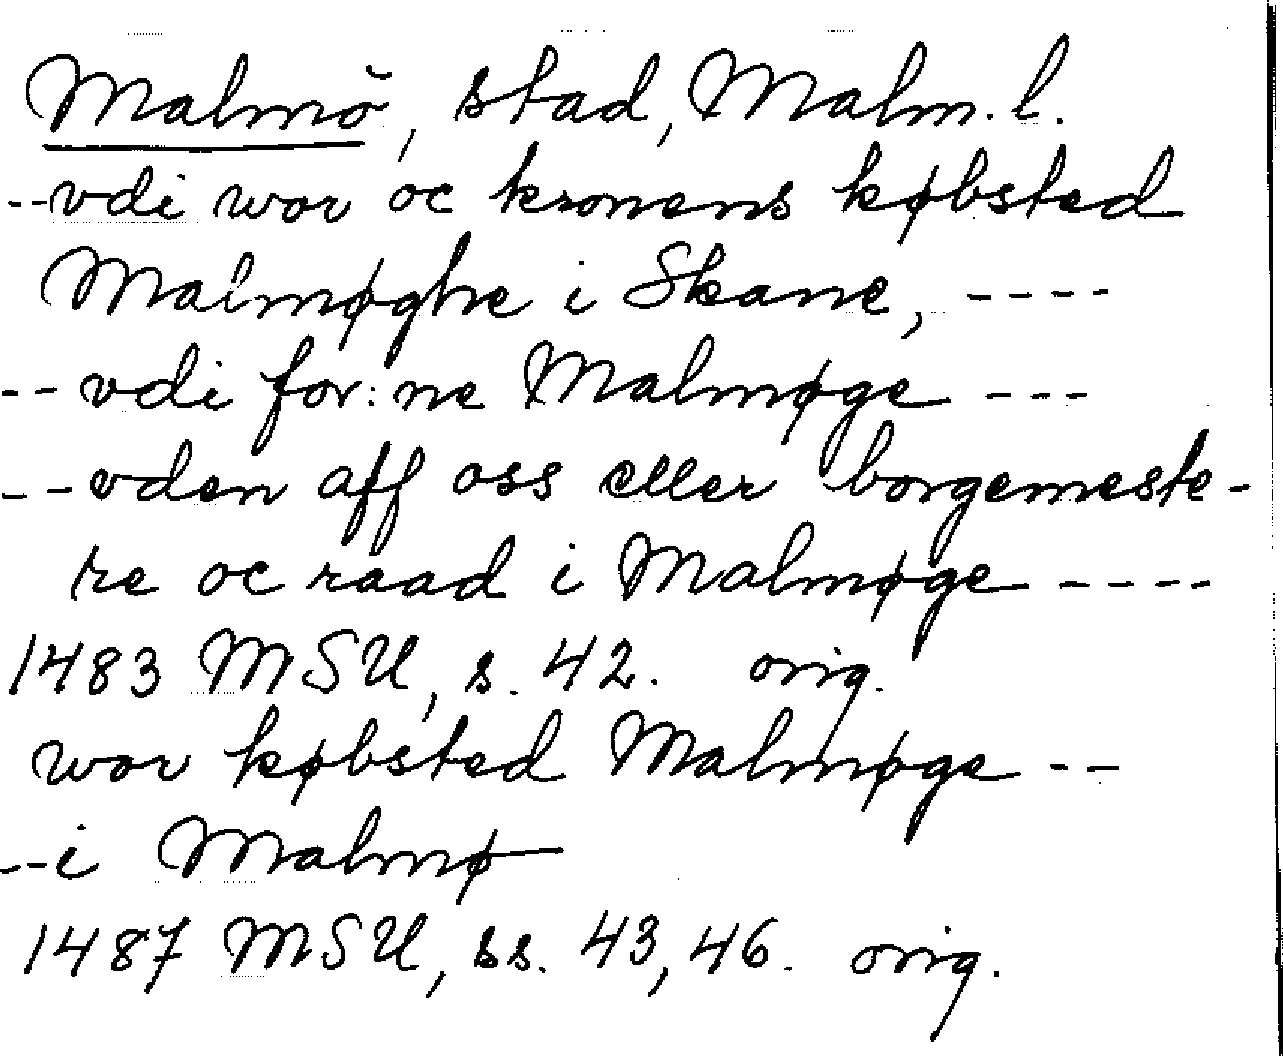 Malmö, stad, Malm. l.
--vdi wor oc kronens købsted
Malmøghe i Skane, ----
-- vdi for: ne Malmøge ---
--vden aff oss eller borgemeste-
re oc raad i Malmøge ----
1483 MSU, s. 42. orig.
wor købsted Malmøge --
--i Malmø
1487 MSU, ss. 43, 46. orig.